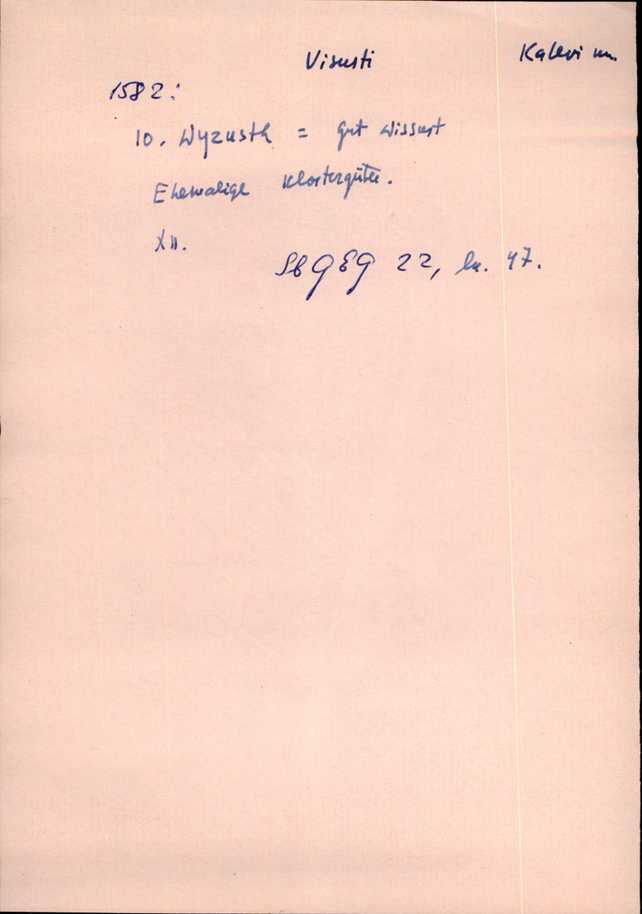 Visusti Kalevi um.
1582:
10. Wyzusth = Gut Wissust
Ehemalige Klostergüter.
XII.
SbGEG 22, lk. 47.